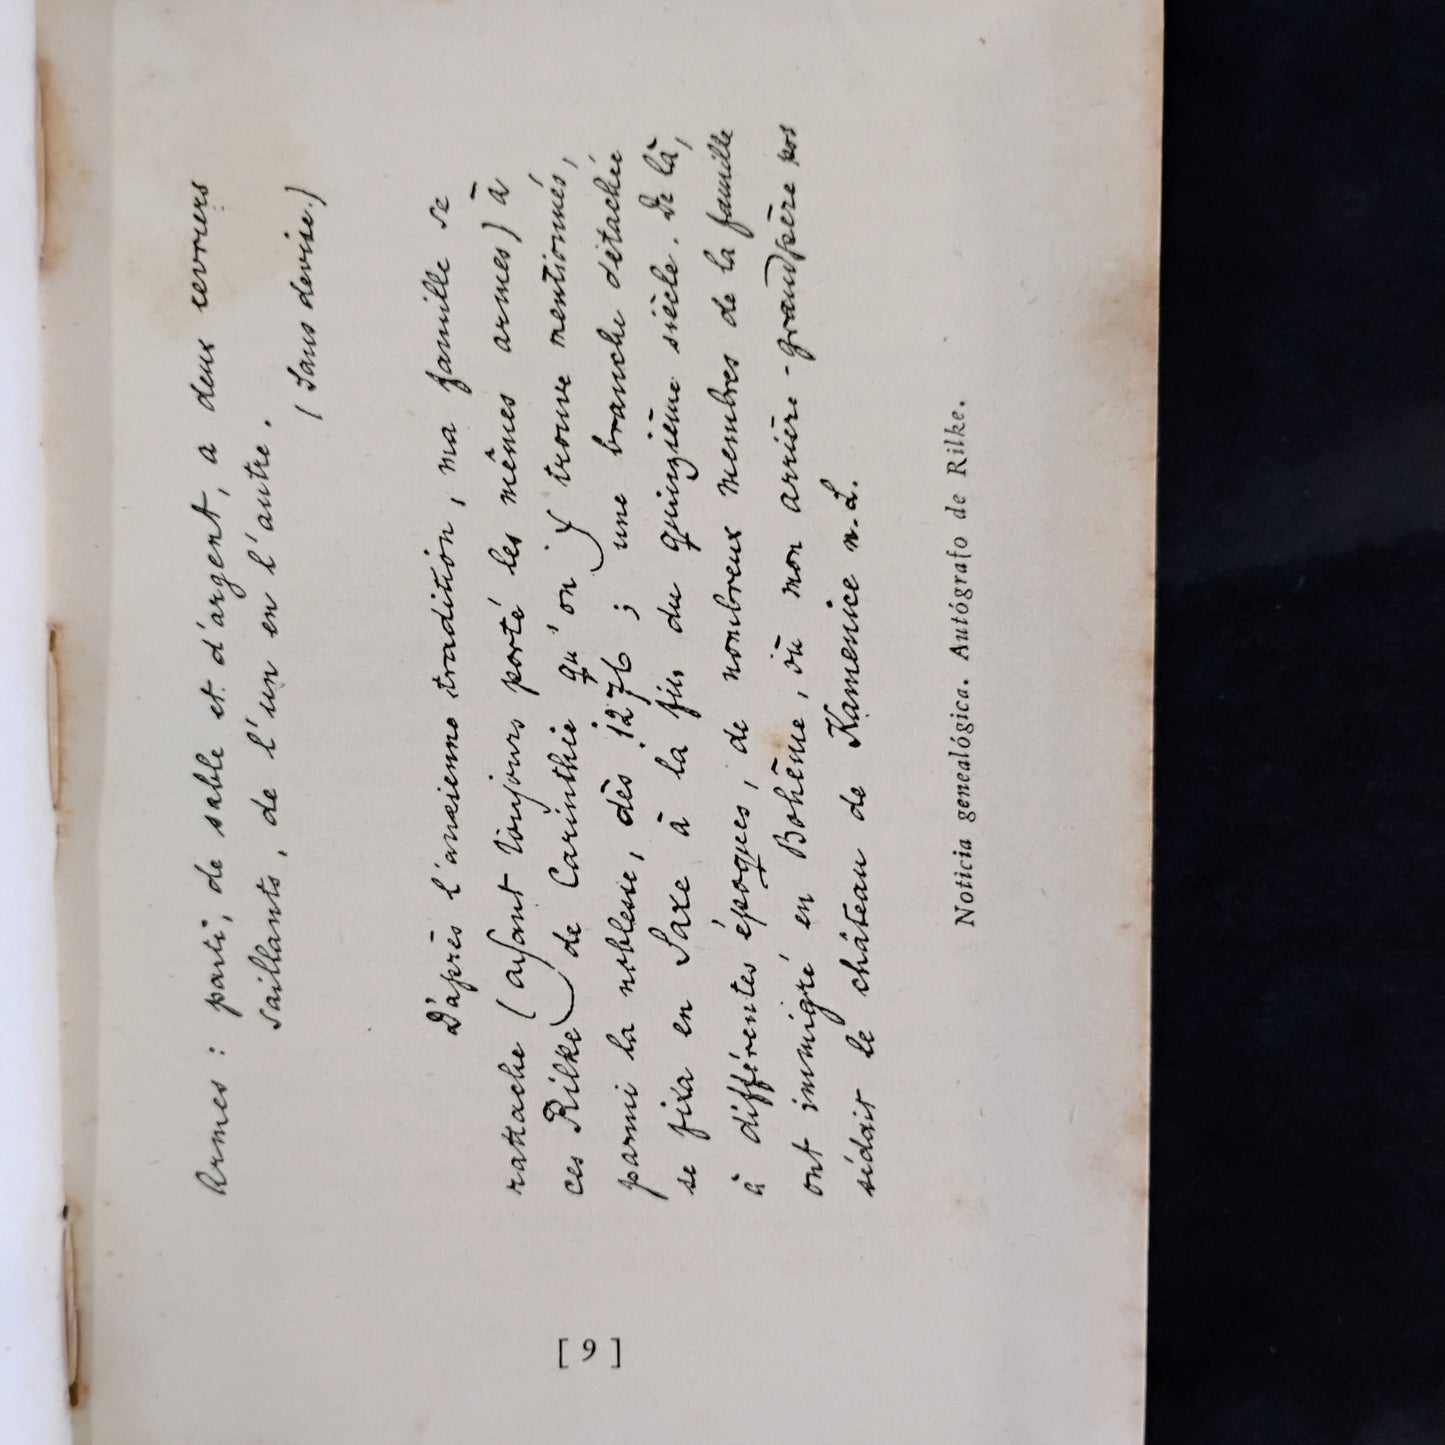 Armes : parti, de sable et d'argent, a deux levriers
saillants, de l'un en l'autre.
(Sans devise.)
D'après l'ancienne tradition, ma famille se
rattache (ayant toujours porté les mêmes armes) à
ces Rilke de Carinthie qu'on y trouve mentionnés,
parmi la noblesse, dès 1276 ; une branche détachée
se fixa en Saxe à la fin du quinzième siècle. De là,
à différentes époques, de nombreux membres de la famille
ont immigré en Bohême, où mon arrière-grandpère pos
sédait le château de Kamenice n.L.
Noticia genealógica. Autógrafo de Rilke.
[ 9 ]